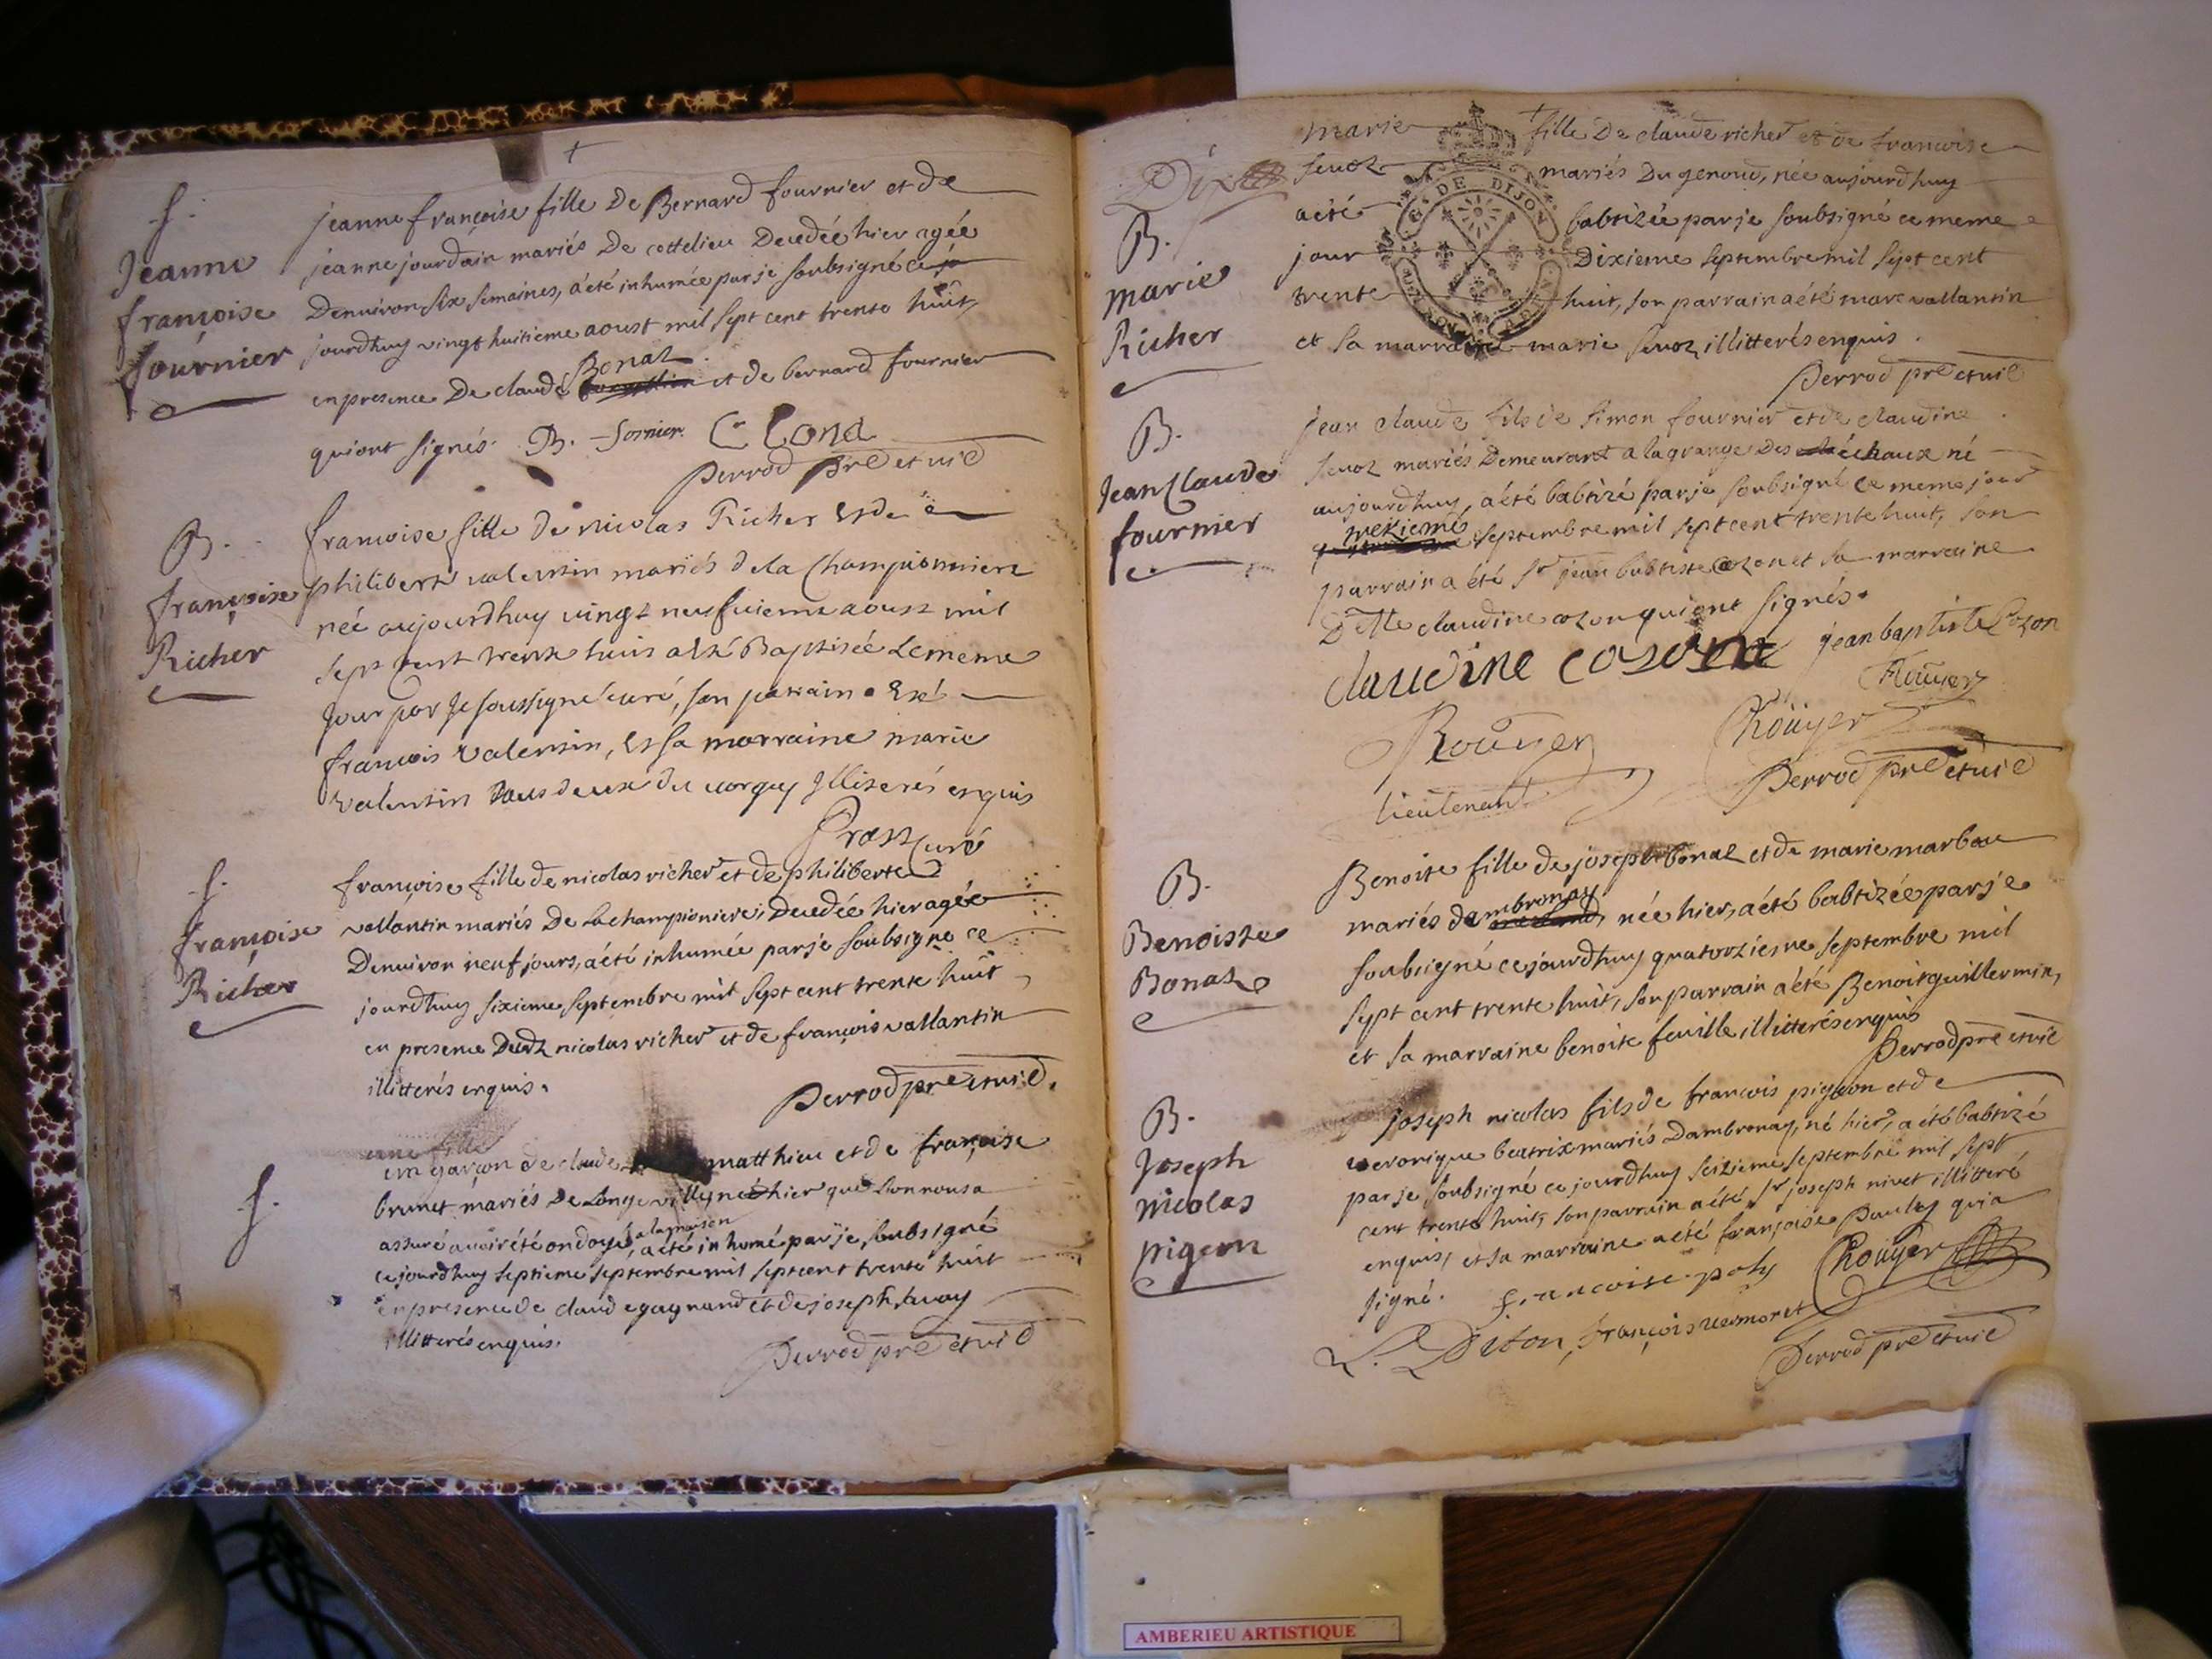 f.
Jeanne
françoise
fournier
jeanne françoise fille De Bernard fournier et de
jeanne jourdain mariés De cottelieu Decedée hier agée
Denuiron six semaines, a été inhumée par je soubsigné ce jo
jourdhuy vingt huitieme aoust mil sept cent trente huit,
en presence De claude Bonaz et de bernard fournier
qui ont signés. B. fornier. C Bona
Perrod pre et vic
B.
françoise
Richer
françoise fille de nicolas Richer Et de
philiberte valentin mariés de la Championniere
née aujourdhuy vingt neufuieme aoust mil
sept cent trente huit a Eté Baptisée Le meme
Jour par Je soussigné curé, son parrain a Eté
françois valentin, Et sa marraine marie
valentin tous deux du Illiterés enquis
curé
f.
françoise
Richer
françoise fille de nicolas richer et de philiberte
vallantin mariés De la championiere, Decedée hier agée
Denuiron neuf jours, a été inhumée par je soubsigné ce
jourdhuy sixieme septembre mil sept cent trente huit,
en presence Dudt nicolas richer et de françois vallantin
illitterés enquis.
Perrod pre et vic.
f.
une fille
un garçon de claude matthieu et de françoise
brunet mariés De Longeville, né hier que lon nous a
assuré auoir été ondoyé, a la maison a été inhumé par je, soubsigné
ce jourdhuy septieme septembre mil sept cent trente huit
en presence de claude gagnand et de joseph
illitterés enquis.
Perrod pre et vic
marie fille De claude richer et de francoise
mariés Du genoud, née aujourdhuy
a été babtizée par je soubsigné ce meme
jour Dixieme septembre mil sept cent
trente huit, son parrain a été marc vallantin
et sa marraine marie illitterés enquis.
Perrod pre et vic
DE DIJON
B.
marie
Richer
B.
Jean Claude
fournier
jean claude fils de simon fournier et de claudine
mariés Demeurant a la grange Des échaux né
aujourdhuy, a été babtizé par je soubsigné ce meme jour
treizieme septembre mil sept cent trente huit, son
parrain a été sr jean babtiste cozon et sa marraine
Delle claudine cozon qui ont signés.
claudine cozon jean baptiste Cozon
Roüyer
Roüyer Roüyer
lieutenant Perrod pre et vic
B.
Benoiste
Bonaz
Benoite fille de joseph bonaz et de marie marbou
mariés dambronay, née hier, a été babtizée par je
soubsigné ce jourdhuy quatorzieme septembre mil
sept cent trente huit, son parrain a été Benoit guillermin,
et sa marraine benoite feuille illitterés enquis
Perrod pre et vic
B.
Joseph
nicolas
pigeon
joseph nicolas fils de francois pigeon et de
veronique beatrix mariés Dambronay, né hier, a été babtizé
par je soubsigné ce jourdhuy seizieme septembre mil sept
cent trente huit, son parrain a été sr joseph nivet illitteré
enquis, et sa marraine a été françoise pauly qui a
signé. francoise poly Roüyer
françois uermoret
Perrod pre et vic
AMBERIEU ARTISTIQUE